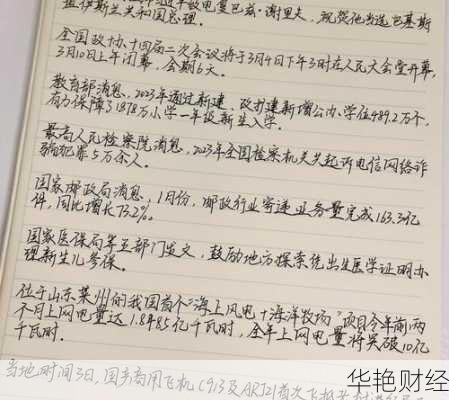 致电夏巴兹·谢里夫,祝贺他当选巴基斯
兰共和国总理。
全国政协十四届二次会议将于3月4日下午3时在人民大会堂开幕,
3月10日上午闭幕,会期6天。
教育部消息,2023年通过新建、改扩建新增公办学位489.2万个,
有力保障了1878万小学一年级新生入学。
最高人民检察院消息,2023年全国检察机关起诉电信网络诈
骗犯罪5万余人。
国家邮政局消息,1月份,邮政行业寄递业务量完成163.3亿
件,同比增长73.2%。
国家医保局等五部门发文,鼓励地方探索凭出生医学证明办
理新生儿参保。
位于山东莱州的我国首个“海上风电+海洋牧场”项目今年前两
个月上网电量达1.8485亿千瓦时,全年上网电量将突破10亿
千瓦时。
当地时间3日,国产商用飞机C919及ARJ21首次飞抵
华艳财经